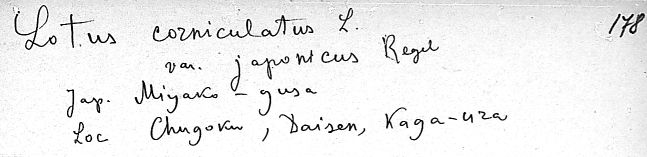 Lotus corniculatus L. 178
var. japonicus Regel
Jap. Miyako-gusa
Loc Chugoku, Daisen, Kaga-ura